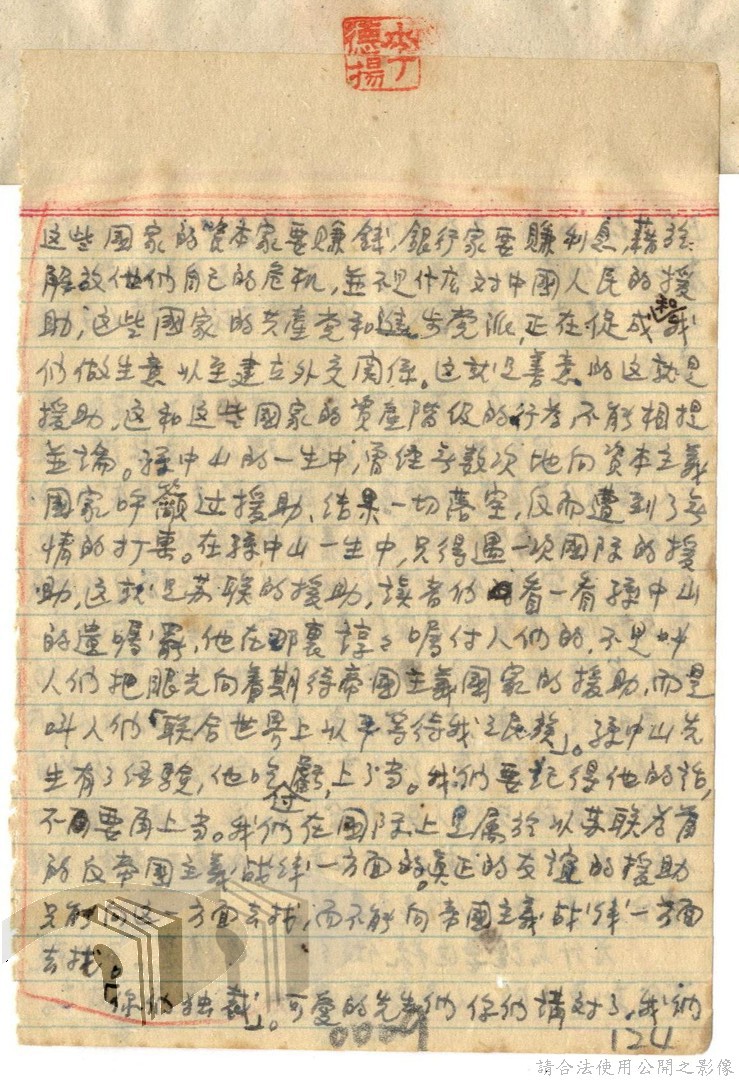 李丁
德揚
这些国家的资本家要賺錢,銀行家要賺利息,藉於
解放他们自己的危机,並不是什庅对中國人民的援
助,这些國家的共產党和進步党派,正在促成和我
们做生意以至建立外交関係。这就是善意的这就是
援助,这和这些國家的資產階级的行为,不能相提
並論。孫中山的一生中,曾经无数次地向资本主義
国家呼籲过援助、结果一切落空,反而遭到了无
情的打击。在孫中山一生中,只得過一次國际的援
助,这就是苏联的援助,读者们看一看孫中山
的遺嘱罷,他在那裏諄々嘱付人们的,不是叫
人们把眼光向着期待帝國主義國家的援助,而是
叫人们「联合世界上以平等待我之民族」。孫中山先
生有了经験,他吃过虧,上了当。我们要記得他的話,
不要再上当。我们在國际上是属於以苏联为首
的反帝国主義战線一方面的。真正的友谊的援助
只能向这一方面去找,而不能向帝國主義战線一方面
去找。
「你们独裁」。可愛的先生们你们講对了,我们
0009
124
請合法使用公開之影像